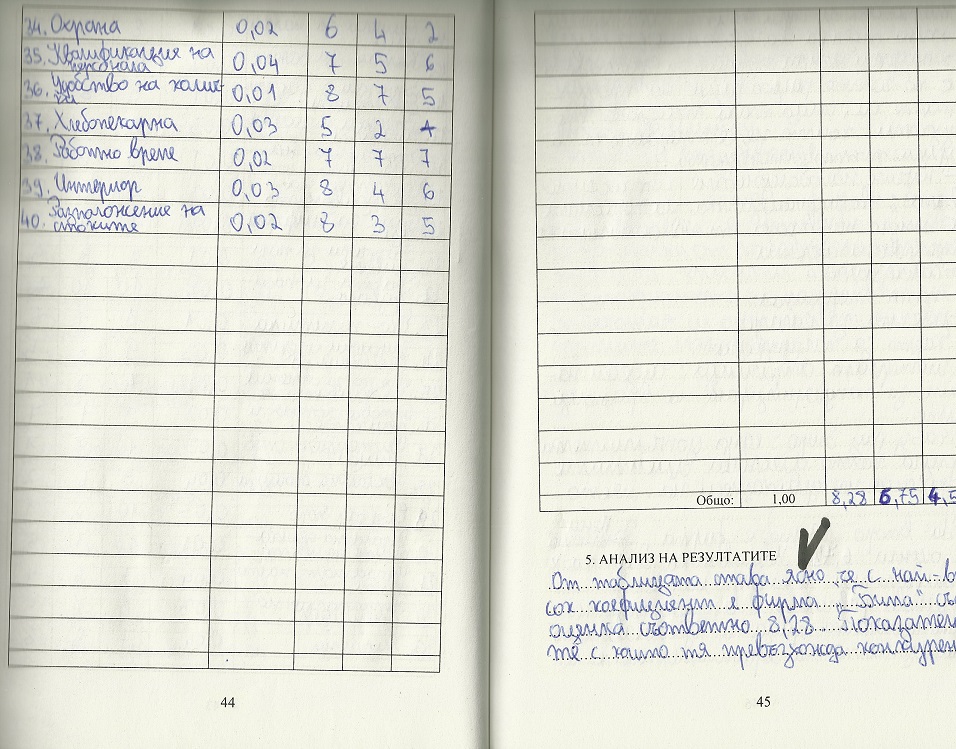 34. Охрана 0,02 6 4 2
35. Квалификация на персонала 0,04 7 5 6
36. Удобство на колич- ки 0,01 8 7 5
37. Хлебопекарна 0,03 5 2 4
38. Работно време 0,02 7 7 7
39. Интериор 0,03 8 4 6
40. Разположение на стоките 0,02 8 3 5
44
Общо: 1,00 8,28 6,75 4,5
5. АНАЛИЗ НА РЕЗУЛТАТИТЕ
От таблицата става ясно че с най-в
сок коефициент е фирма „Била" съ
оценка съответно 8,28. Показател
те с които тя превъзхожда конкурен
45